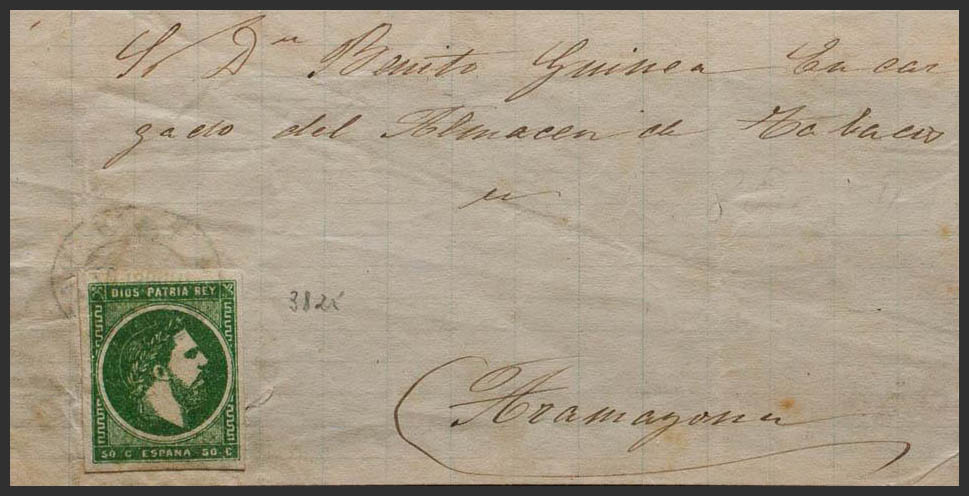 Sr Dn Benito Guinea Encar
gado del Almacen de Tabacos
en
DIOS PATRIA REY
Aramayona
50 C ESPAÑA 50 C